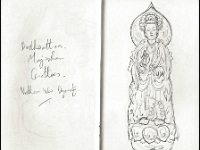 Bodhisattva
Grottoes
Northern Wei Dynasty